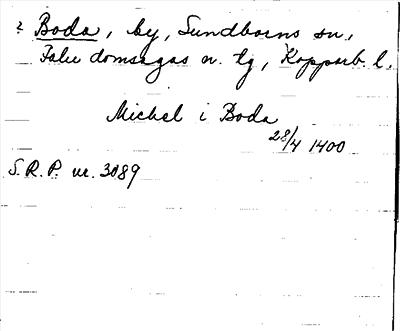 ? Boda, by, Sundborns sn,
Falu domsagas n. tg, Kopparb. l.
Michel i Boda
28/4 1400
S.R.P. nr. 3089